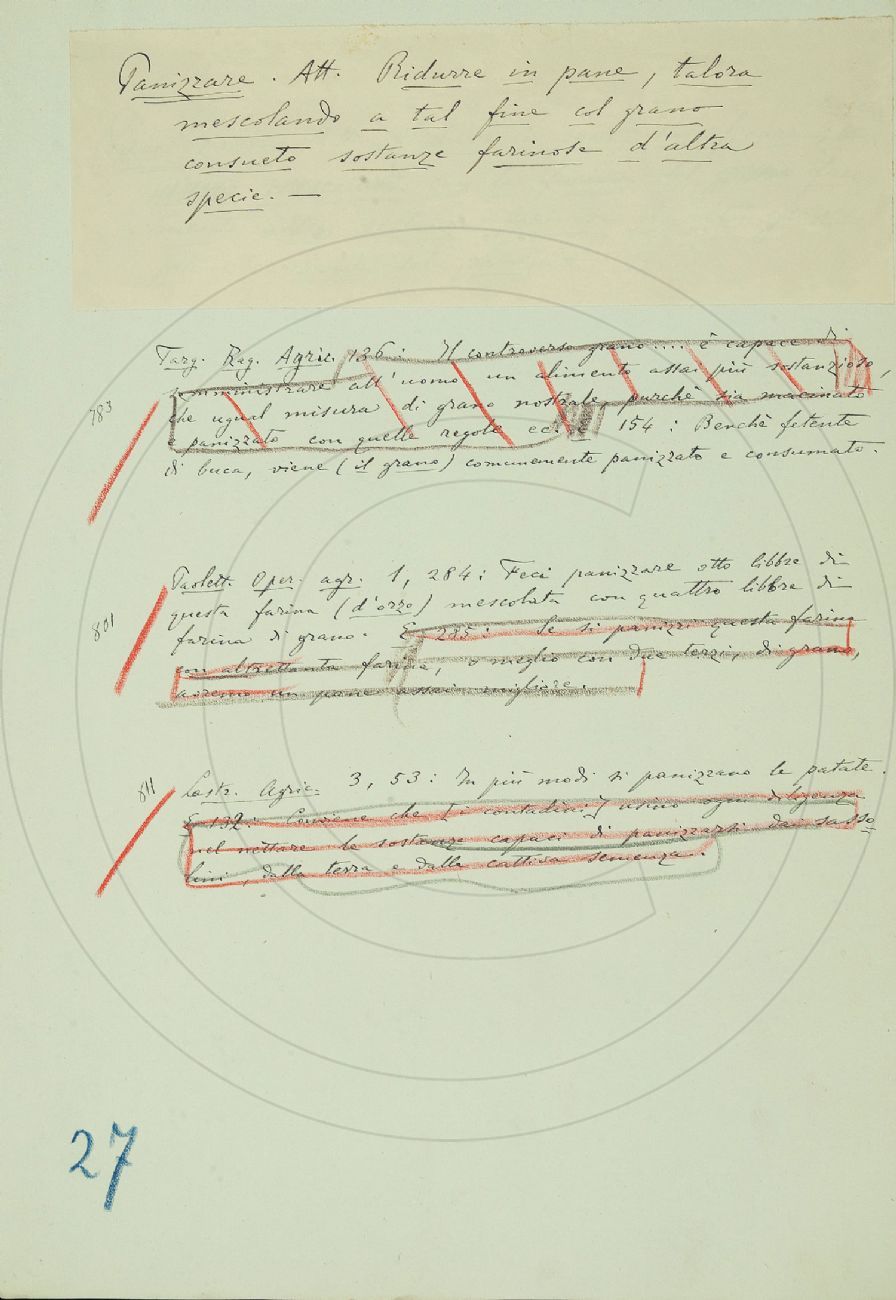 Panizzare. Att. Ridurre in pane, talora
mescolando a tal fine col grano
consueto sostanze farinose d'altra
specie. —
Targ. Rag. Agric. 136: Il controverso grano... è capace di
somministrare all'uomo un alimento assai più sostanzioso,
che ugual misura di grano nostrale, purchè sia macinato
e panizzato con quelle regole ec. E 154: Benchè fetente
di buca, viene (il grano) comunemente panizzato e consumato.
783
Paolett. Oper. agr. 1, 284: Feci panizzare otto libbre di
questa farina (d'orzo) mescolata con quattro libbre di
farina di grano. E 285: Se si panizzi questa farina
con altrettanta farina, o meglio con due terzi, di grano,
avremo un pane assai migliore.
801
Lastr. Agric. 3, 53: In più modi si panizzano le patate.
E 132: Conviene che [i contadini] usino ogni diligenza
nel nettare le sostanze capaci di panizzarsi dai sasso=
lini, dalla terra e dalla cattiva semenza.
811
27